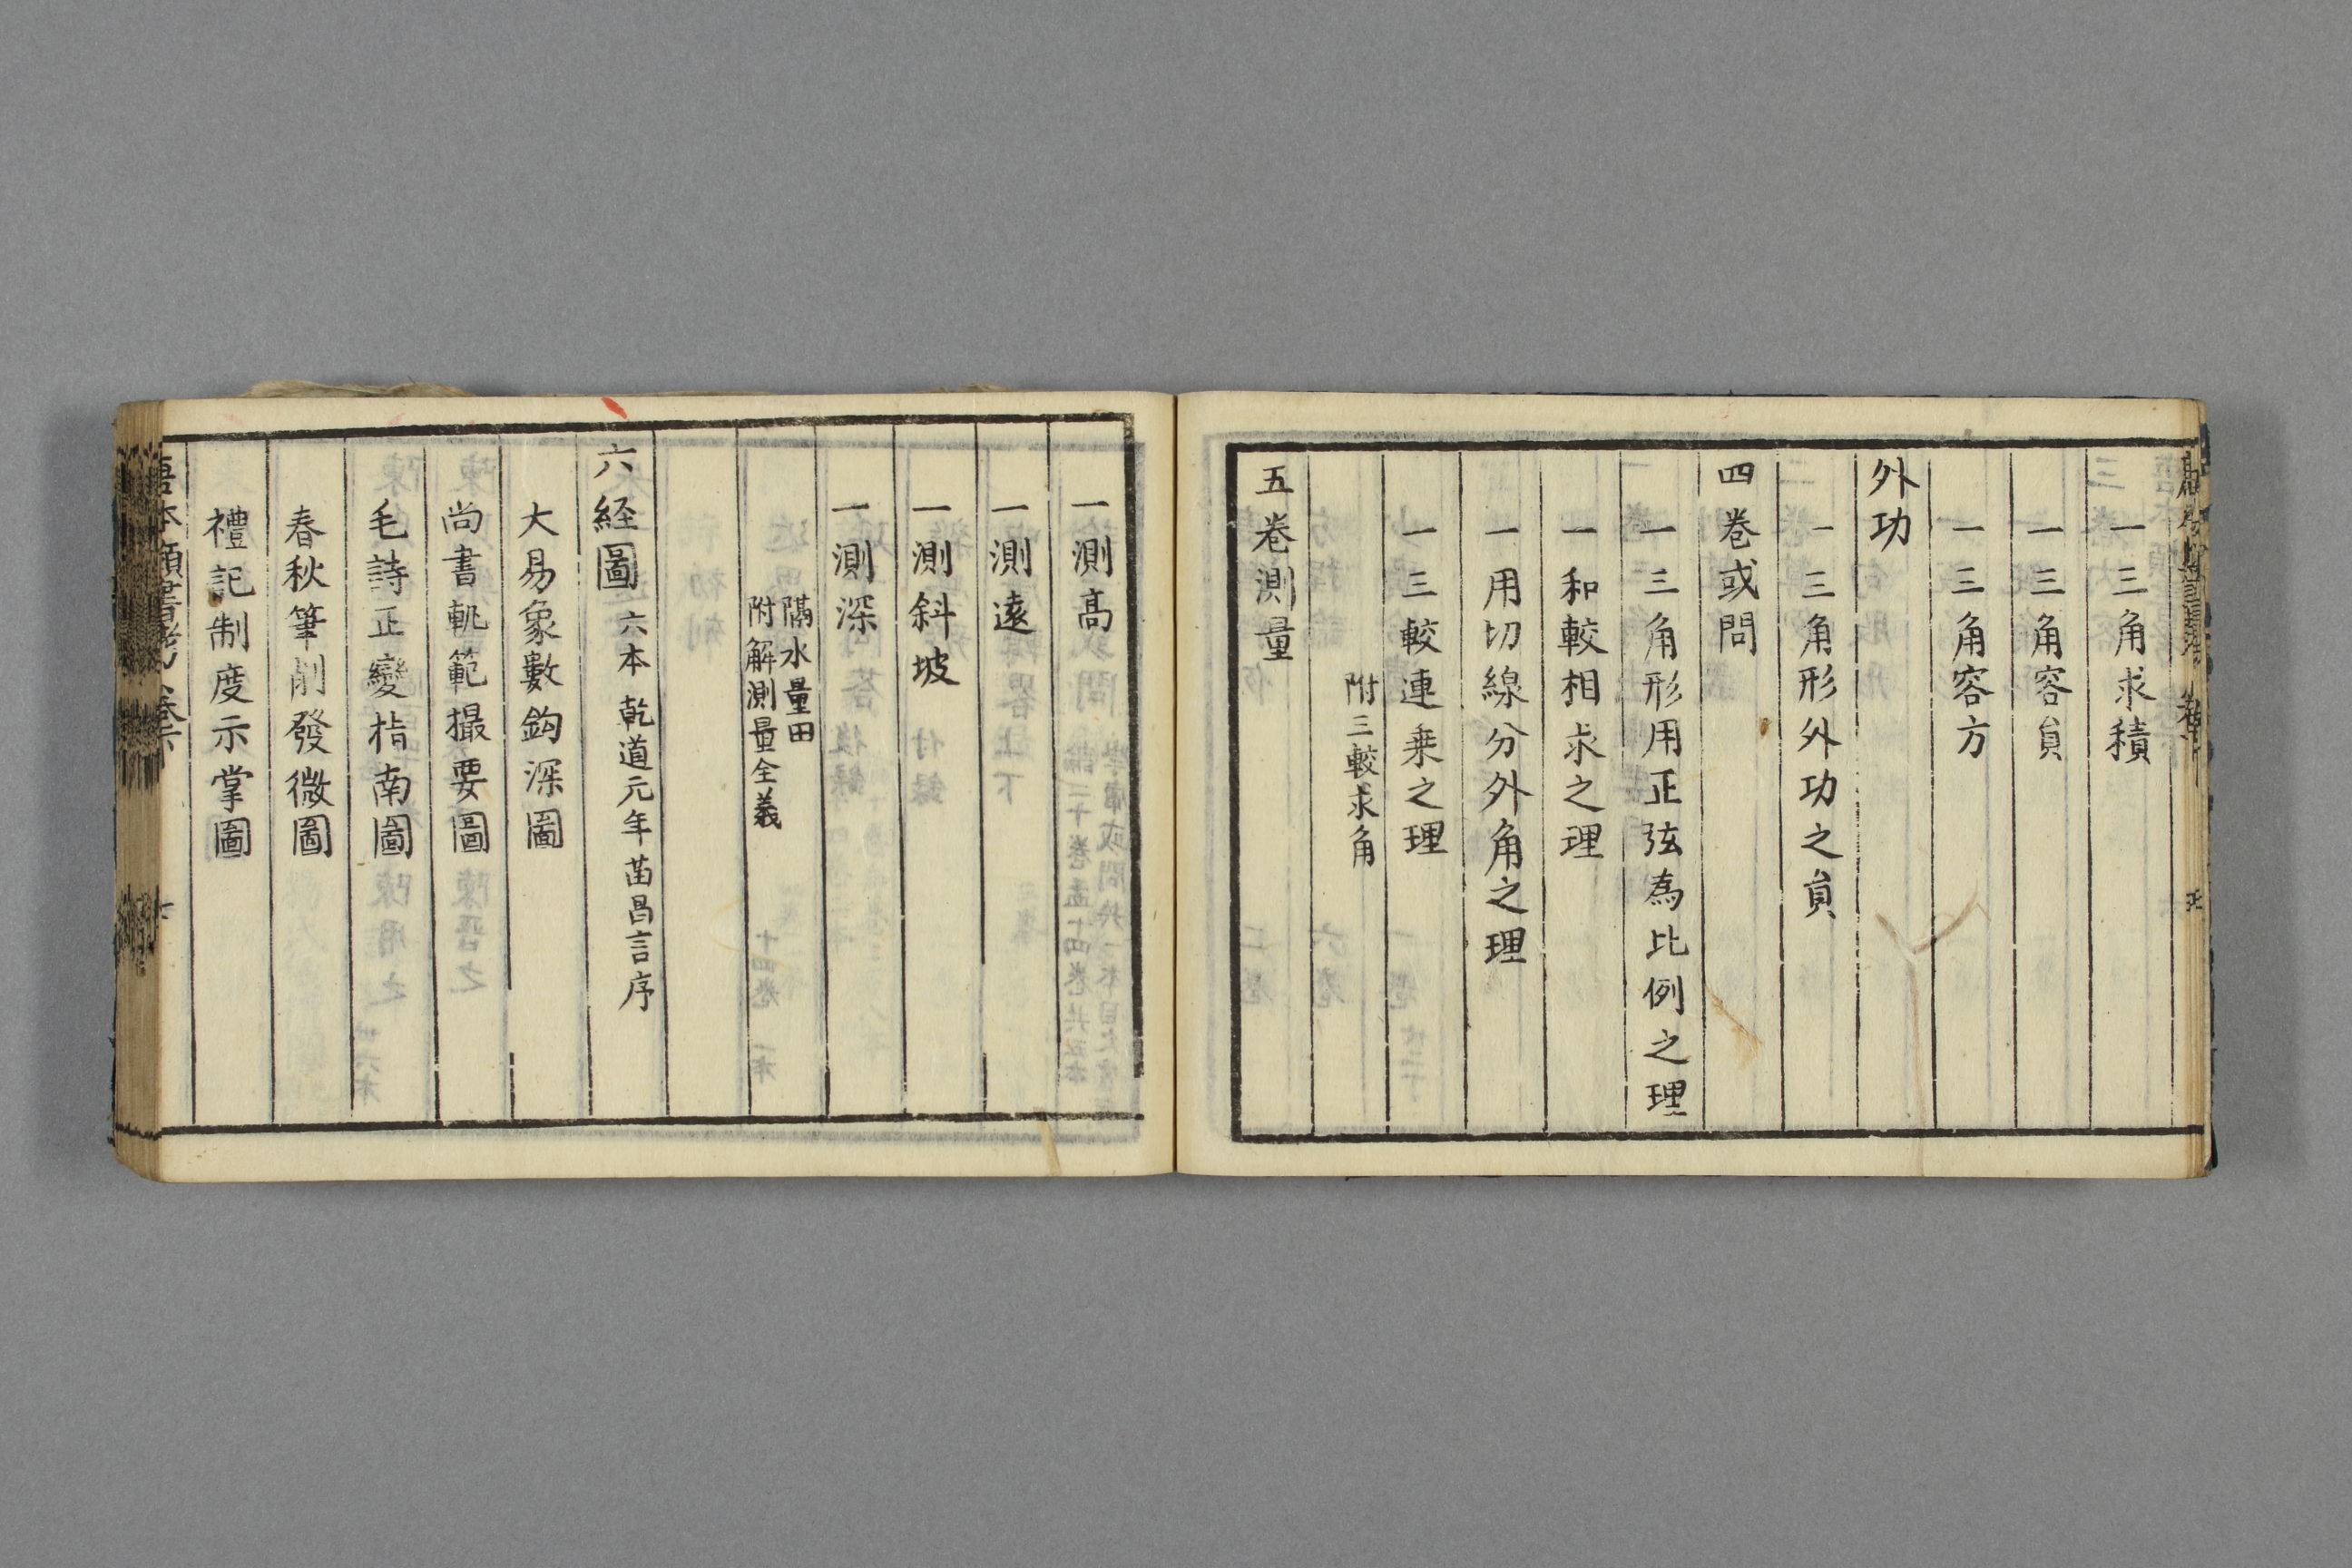 一三角求積
一三角容貟
一三角容方
外功
一三角形外功之貟
四卷或問
一三角形用正弦為比例之理
一和較相求之理
一用切線分外角之理
一三較連乗之理
附三較求角
五卷測量
一測高
一測遠
一測斜坡
一測深
隔水量田
附解測量全義
六経圖 六本 乾道元年苗昌言序
大易象數鈎深圖
尚書軏範撮要圖
毛詩正變指南圖
春秋筆削發微圖
禮記制度示掌圖